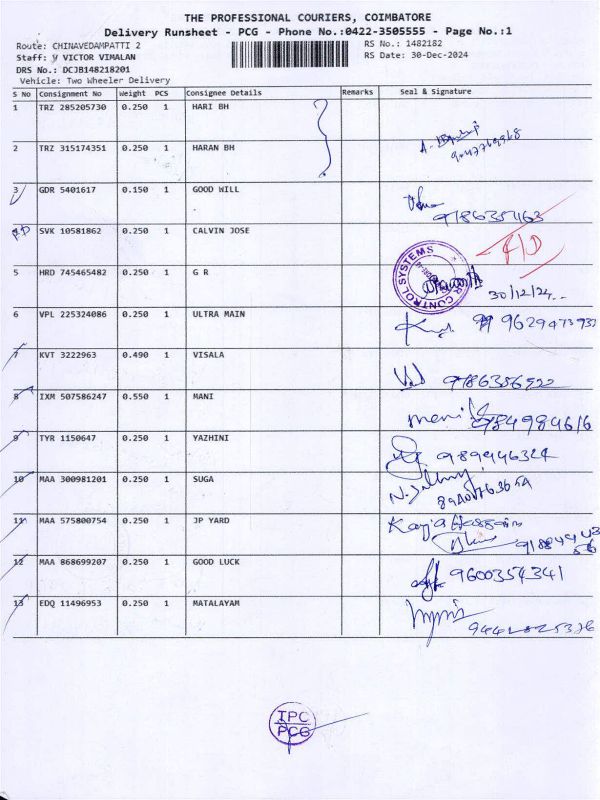 THE PROFESSIONAL COURIERS, COIMBATORE
Delivery Runsheet - PCG - Phone No.:0422-3505555 - Page No.:1
Route: CHINAVEDAMPATTI 2 RS No.: 1482182
Staff: y VICTOR VIMALAN RS Date: 30-Dec-2024
DRS No.: DCJB148218201
Vehicle: Two Wheeler Delivery
S No Consignment No Weight PCS Consignee Details Remarks Seal & Signature
1 TRZ 285205730 0.250 1 HARI BH
2 TRZ 315174351 0.250 1 HARAN BH
3 GDR 5401617 0.150 1 GOOD WILL
SVK 10581862 0.250 1 CALVIN JOSE F/D
5 HRD 745465482 0.250 1 G R CONTROL SYSTEMS 30/12/24
6 VPL 225324086 0.250 1 ULTRA MAIN
7 KVT 3222963 0.490 1 VISALA
8 IXM 507586247 0.550 1 MANI mani
9 TYR 1150647 0.250 1 YAZHINI 989946324
10 MAA 300981201 0.250 1 SUGA
11 MAA 575800754 0.250 1 JP YARD
12 MAA 868699207 0.250 1 GOOD LUCK 9600354341
13 EDQ 11496953 0.250 1 MATALAYAM
TPC
PCG